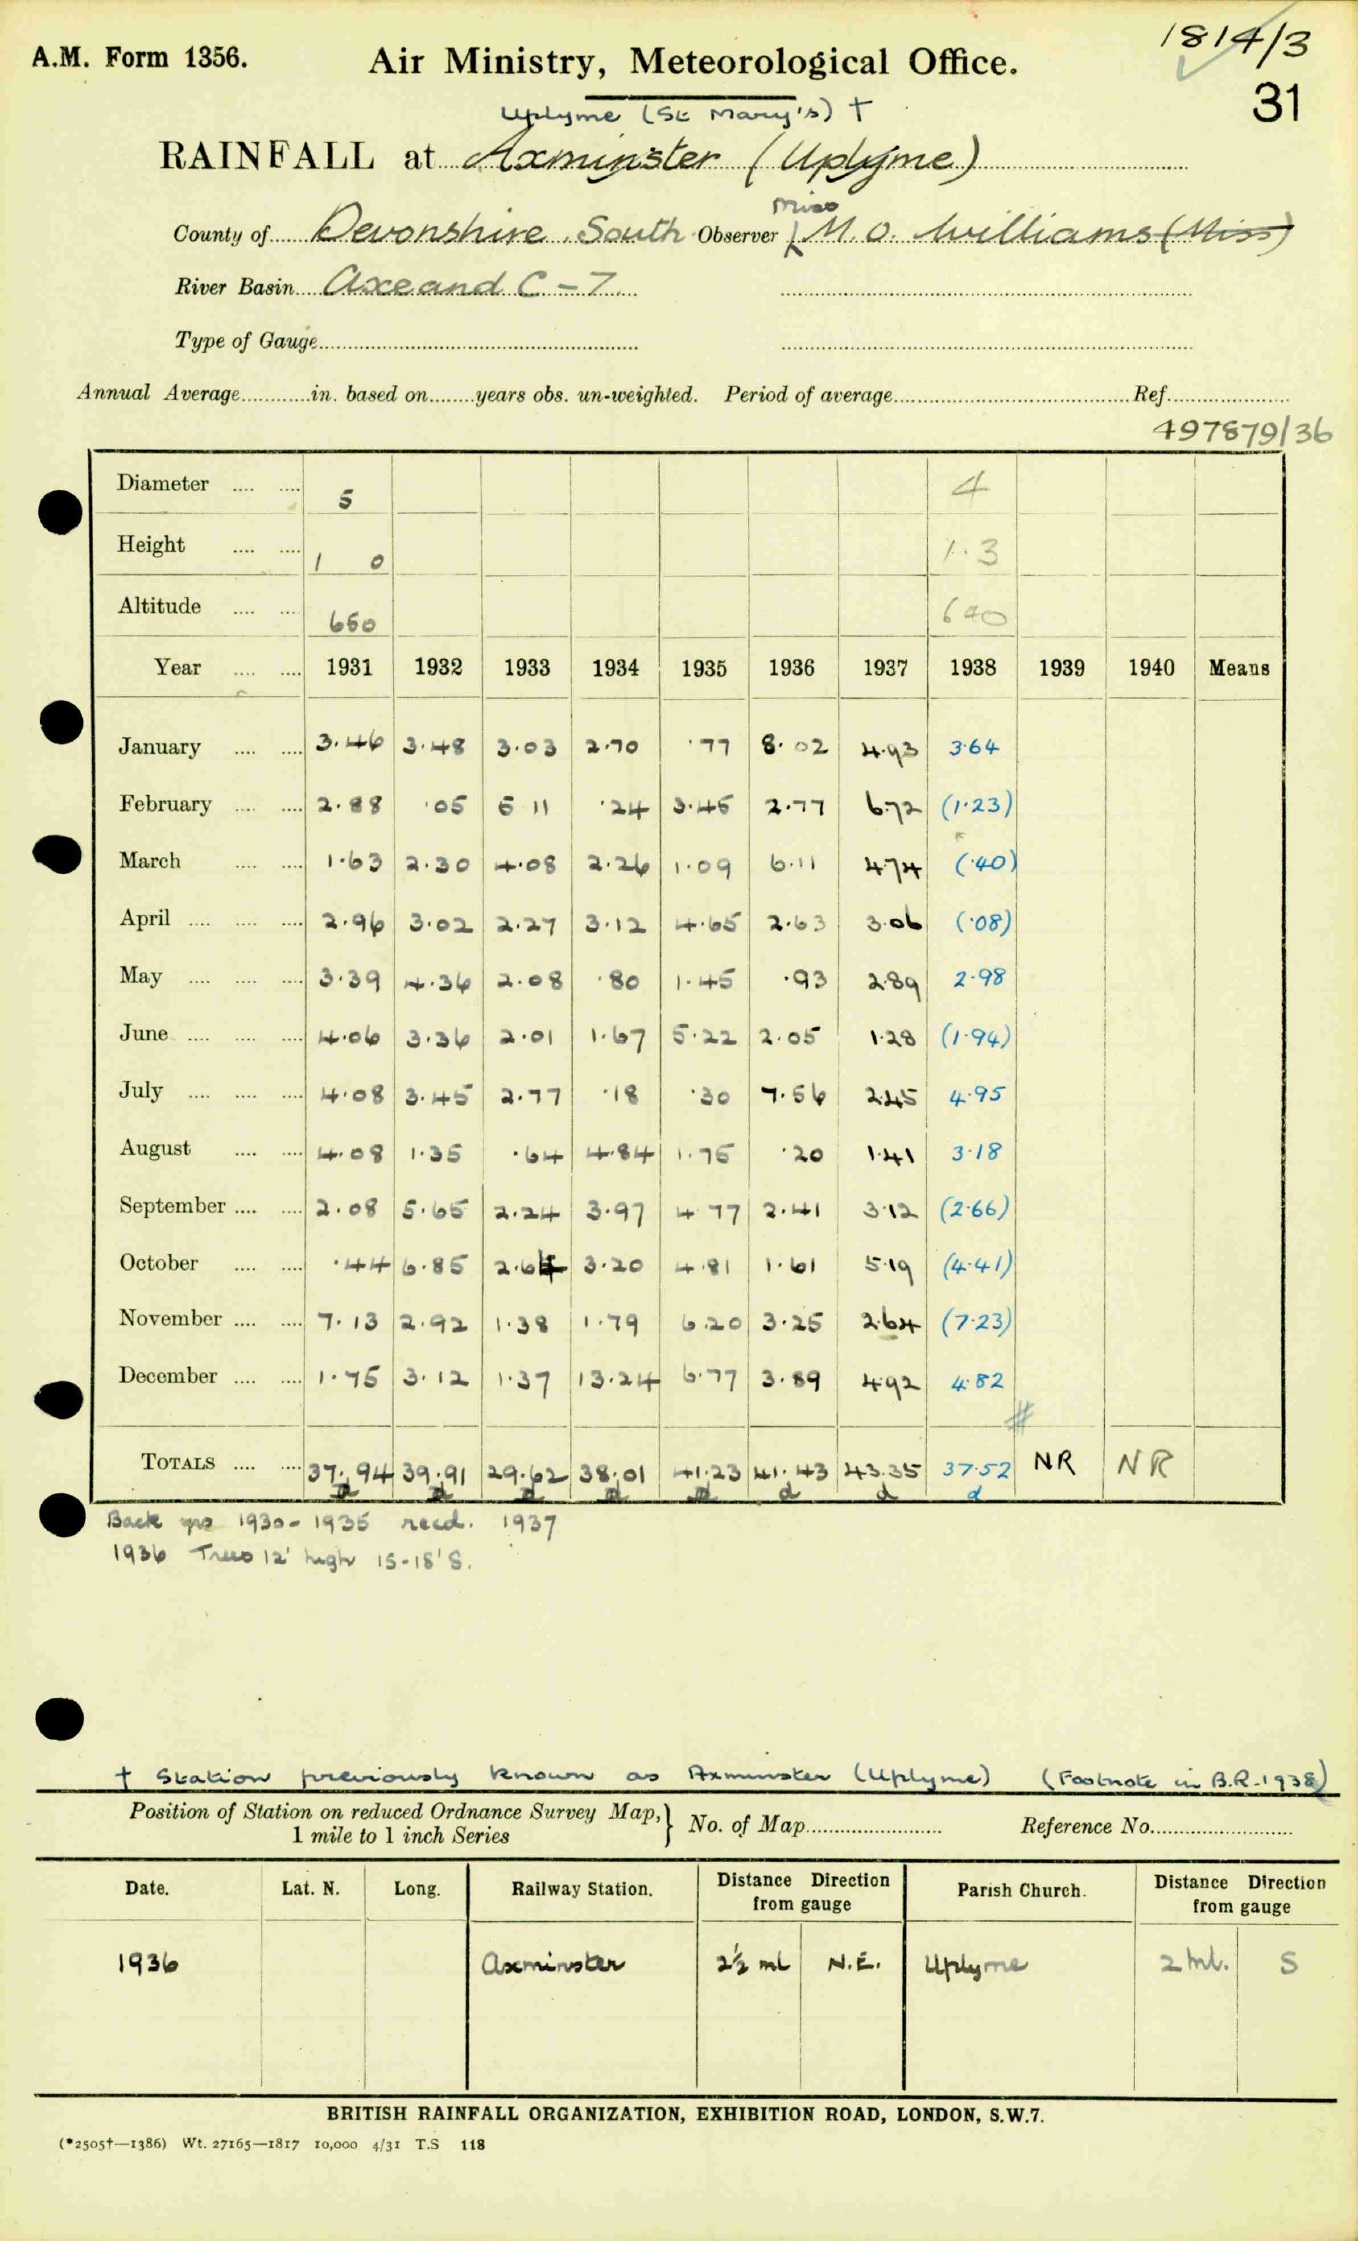 A.M. Form 1356.
Air Ministry, Meteorological Office.
1814/3
31
Uplyme (St Mary's) †
RAINFALL at Axminster (Uplyme)
Miss
County of Devonshire South Observer M. O. Williams (Miss)
River Basin Axe and C - 7
Type of Gauge
Annual Average in. based on years obs. un-weighted. Period of average Ref.
497879/36
Diameter 5 4
Height 1 0 1.3
Altitude 650 640
Year 1931 1932 1933 1934 1935 1936 1937 1938 1939 1940 Means
January 3.46 3.48 3.03 2.70 .77 8.02 4.93 3.64
February 2.88 .05 5 11 .24 3.45 2.77 6.72 (1.23)
March 1.63 2.30 4.08 2.26 1.09 6.11 4.74 (.40)
April 2.96 3.02 2.27 3.12 4.65 2.63 3.06 (.08)
May 3.39 4.36 2.08 .80 1.45 .93 2.89 2.98
June 4.06 3.36 2.01 1.67 5.22 2.05 1.28 (1.94)
July 4.08 3.45 2.77 .18 .30 7.56 2.45 4.95
August 4.08 1.35 .64 4.84 1.75 .20 1.41 3.18
September 2.08 5.65 2.24 3.97 4 77 2.41 3.12 (2.66)
October .44 6.85 2.64 3.20 4.81 1.61 5.19 (4.41)
November 7.13 2.92 1.38 1.79 6.20 3.25 2.64 (7.23)
December 1.75 3.12 1.37 13.24 6.77 3.89 4.92 4.82
#
TOTALS 37.94 39.91 29.62 38.01 41.23 41.43 43.35 37.52 NR NR
d d d d d d d d
Back yrs 1930-1935 recd. 1937
1936 Trees 12' high 15-18' S.
† Station previously known as Axminster (Uplyme) (Footnote in B.R. 1938)
Position of Station on reduced Ordnance Survey Map,} No. of Map Reference No.
1 mile to 1 inch Series
Date. Lat. N. Long. Railway Station. Distance Direction from gauge Parish Church. Distance Direction from gauge
1936 Axminster 2½ ml N.E. Uplyme 2 ml. S
BRITISH RAINFALL ORGANIZATION, EXHIBITION ROAD, LONDON, S.W.7.
(*2505†—1386) Wt. 27165—1817 10,000 4/31 T.S 118